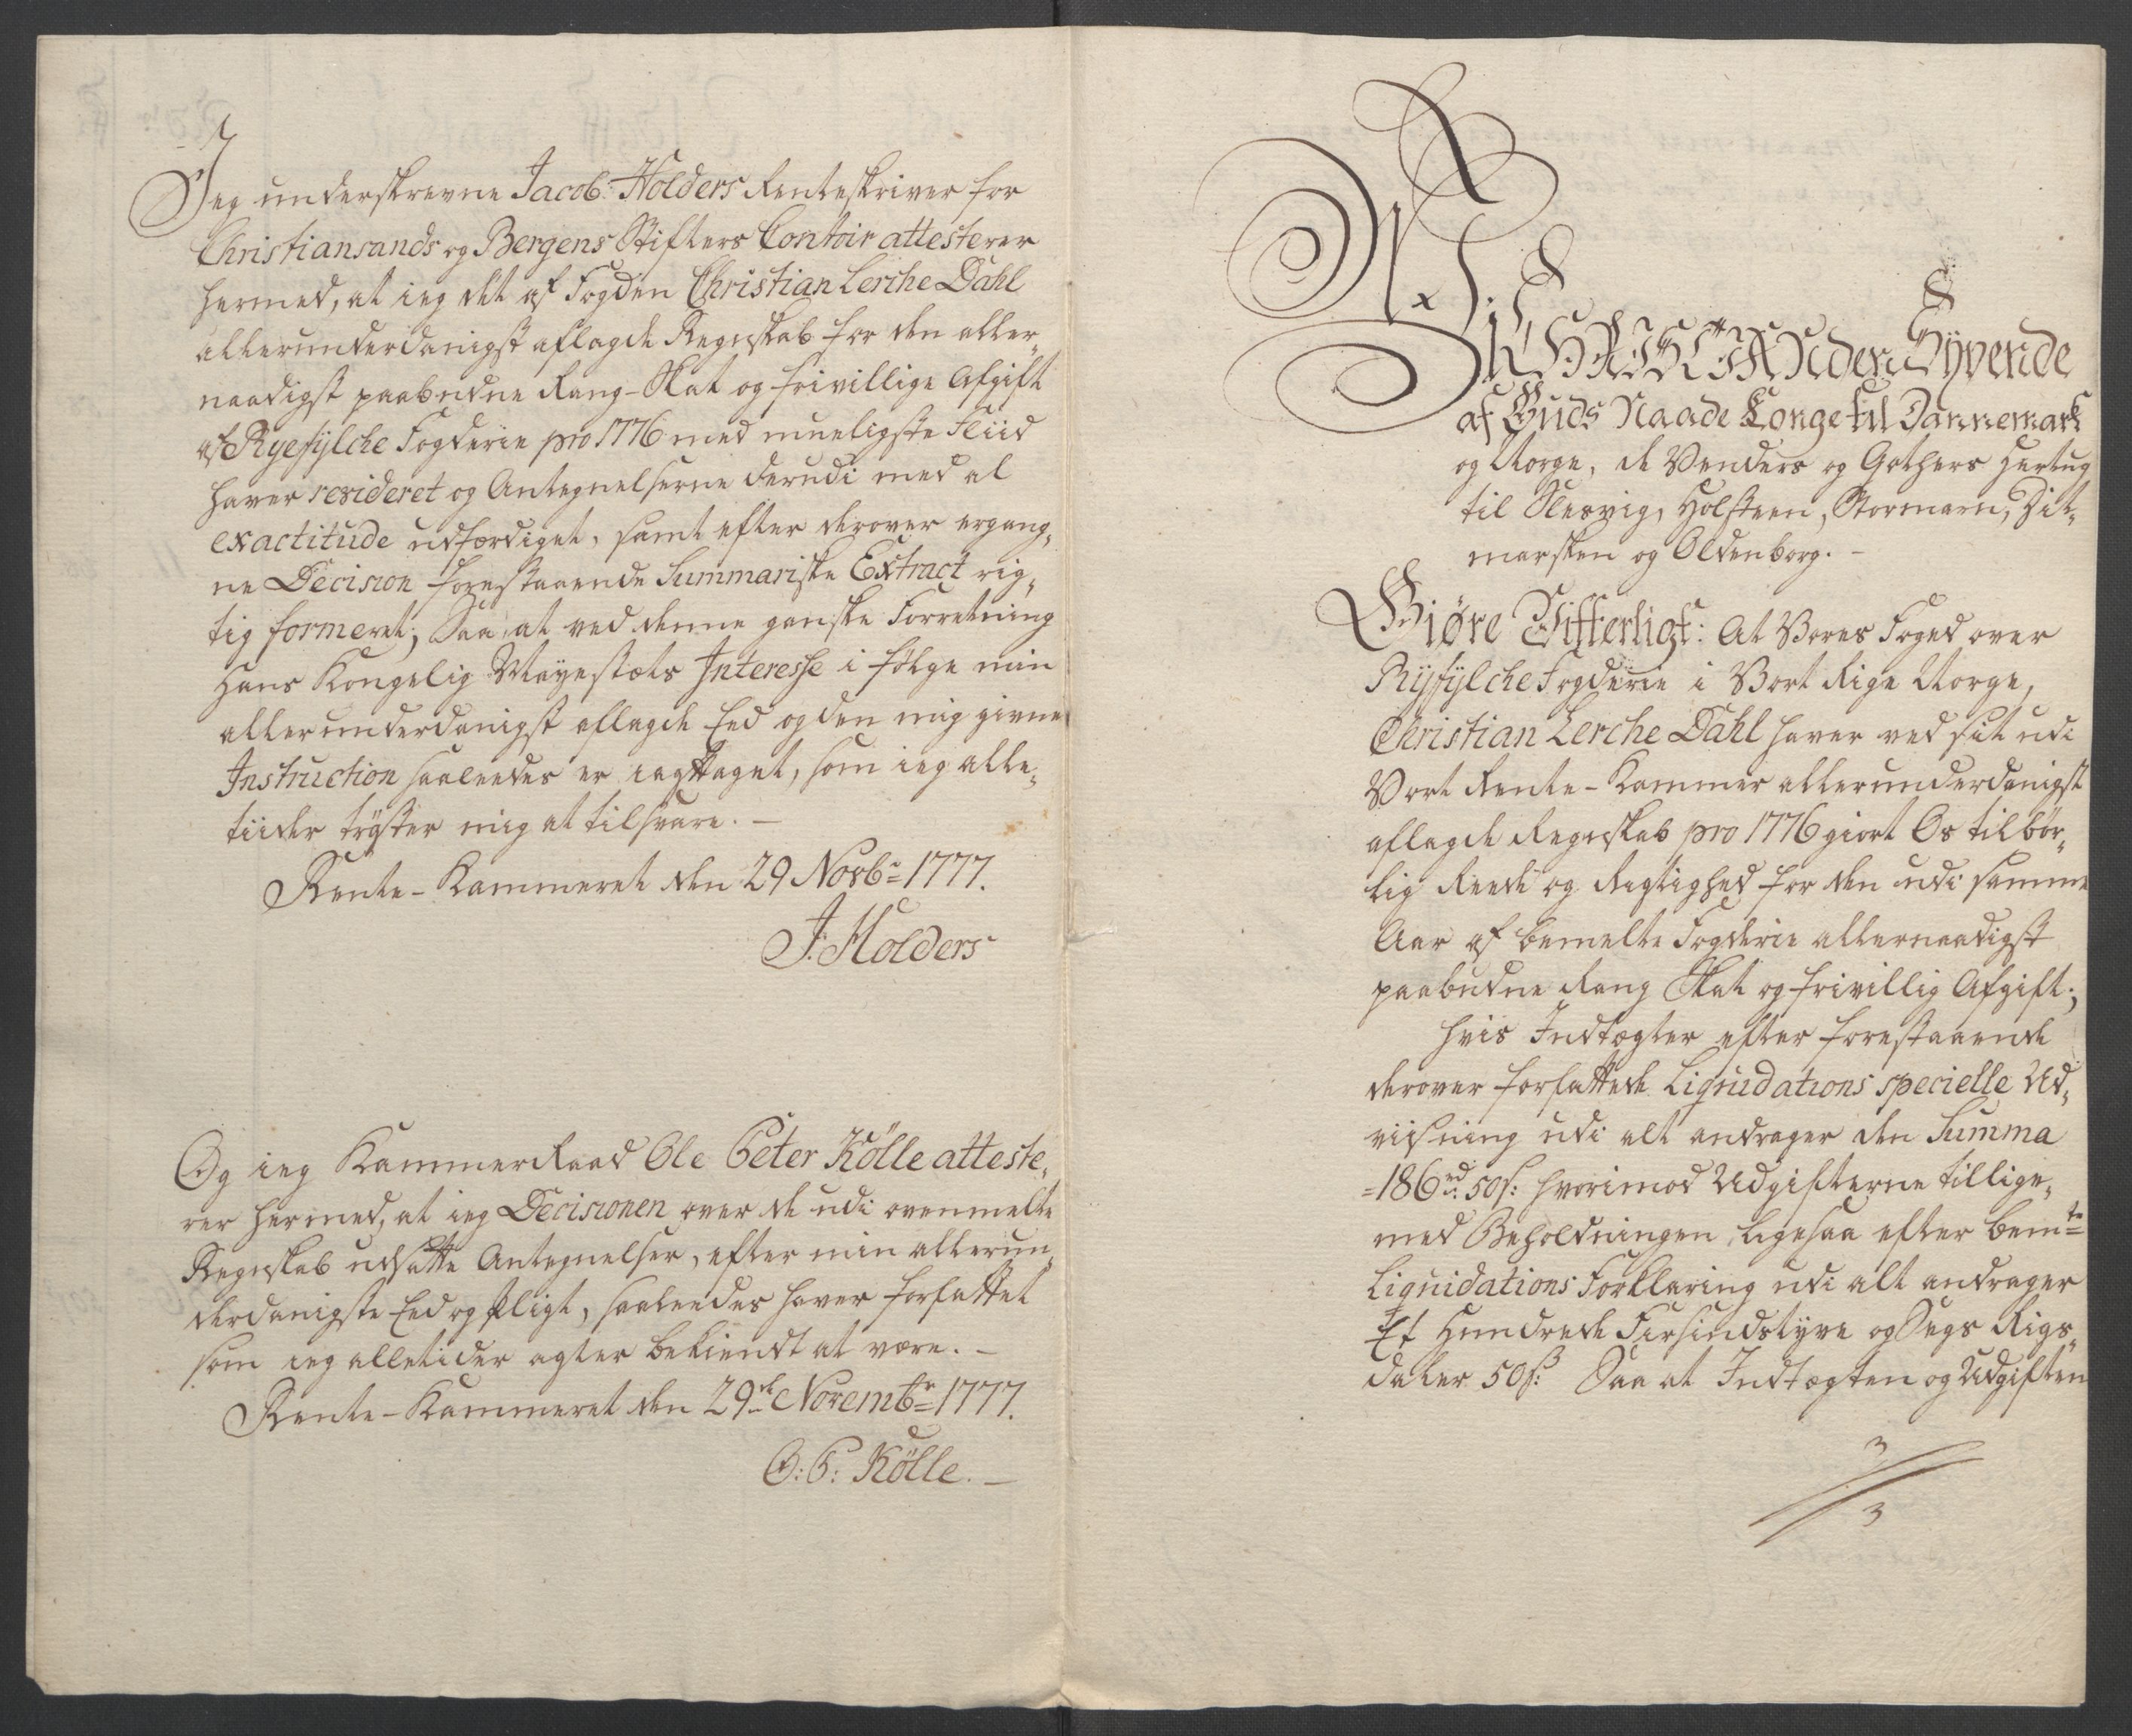 Jeg underskrevne Jacob Holders Renteskriver for
Christiansands og Bergens Stifters Contoir attesterer
hermed, at ieg det af Fogden Christian Lerche Dahl
allerunderdanigst aflagde Regnskab for den aller-
naadigst paabudne Rang-Skat og frivillige Afgift
af Ryefylche Fogderie pro 1776 med mueligste Fliid
haver revideret og Antegnelserne derudi med al
exactitude udfærdiget, samt efter derover ergang-
ne Decision forestaaende Summariske Extract rig-
tig formeret; Saa at ved denne ganske Forretning
Hans Kongelig Mayestæts Interesse i følge min
allerunderdanigst aflagde Eed og den mig givne
Instruction saaleedes er iagttaget, som ieg alle-
tiider trøster mig at tilsvare. -
Rente-Kammeret den 29 Novbr 1777.
J: Holders
Og ieg Kammer Raad Ole Peter Kölle atteste-
rer hermed, at ieg Decisionen over de udi ovenmelte
Regnskab udsatte Antegnelser, efter min allerun-
derdanigste Eed og Pligt, saaleedes haver forfattet
som ieg alletider agter bekiendt at være. -
Rente-Kammeret den 29de Novembr 1777.
O: P: Kölle. -
Wj.
CHRISTIAN den Syvende
af Guds Naade Konge til Dannemark
og Norge, de Venders og Gothers Hertug
til Slesvig, Holsteen, Stormarn, Dit-
marsken og Oldenborg. -
Giøre Vitterligt: At Vores Foged over
Ryfylche Fogderie i Vort Rige Norge,
Christian Lerche Dahl haver ved sit udi
Vort Rente-Kammer allerunderdanigst
aflagde Regnskab pro 1776 giort Os tilbør-
lig Reede og Rigtighed for den udi samme
Aar af bemelte Fogderie allernaadigst
paabudne Rang Skat og frivillig Afgift;
Hvis Indtægter efter forestaaende
derover forfattede Liqvidations specielle Ud-
viisning udi alt andrager den Summa
=186 rd. 50 s: hvorimod Udgifterne tillige-
med Beholdningen ligesaa efter bemte
Liquidations Forklaring udi alt andrager
Et Hundrede Fiirsindstyve og Sex Rigs-
daler 50 s: Saa at Indtægten og Udgiften
3
3